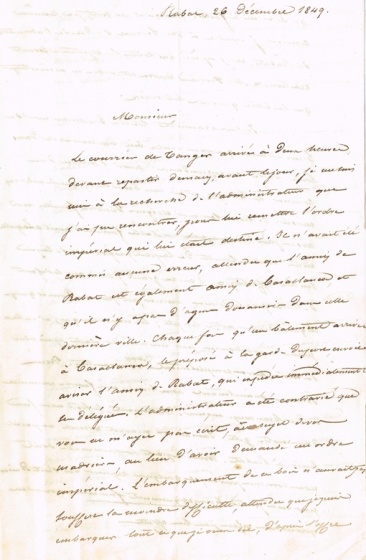 Rabat, 26 Décembre 1849.
Monsieur
Le courrier de Tanger arrivé à deux heures
devant repartir demain, avant le jour, je me suis
mis à la recherche de l'administrateur que
j'ai pu rencontrer, pour lui remettre l'ordre
impérial qui lui était destiné. Il n'avait été
commis aucune erreur, attendu que l'amin de
Rabat est également amin de Casablanca et
qu'il n'y a pas d' douaniers dans cette
dernière ville. Chaque fois qu'un bâtiment arrive
à Casablanca, le préposé à la garde du port envoie
aviser l'amin de Rabat, qui expédie immédiatement
un délégué. L'administrateur a été contrarié que
vous ne m'ayez pas écrit, de
m'adresser au lieu d'avoir demandé un ordre
impérial. L'embarquement de ce bois n'aurait pas
souffert la moindre difficulté, attendu que
embarquer tout ce que je, d'après l'offre